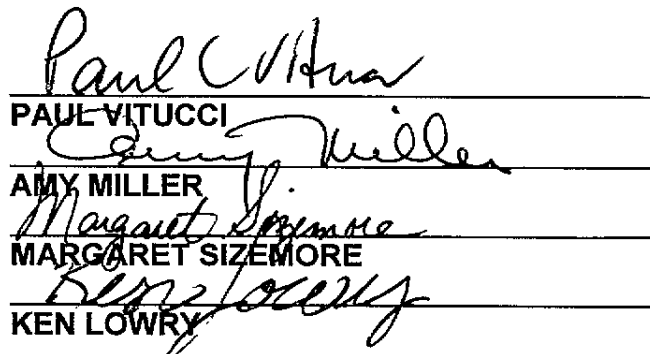 Paul C Vitucci
PAUL VITUCCI
Amy Miller
AMY MILLER
Margaret Sizemore
MARGARET SIZEMORE
Ken Lowry
KEN LOWRY